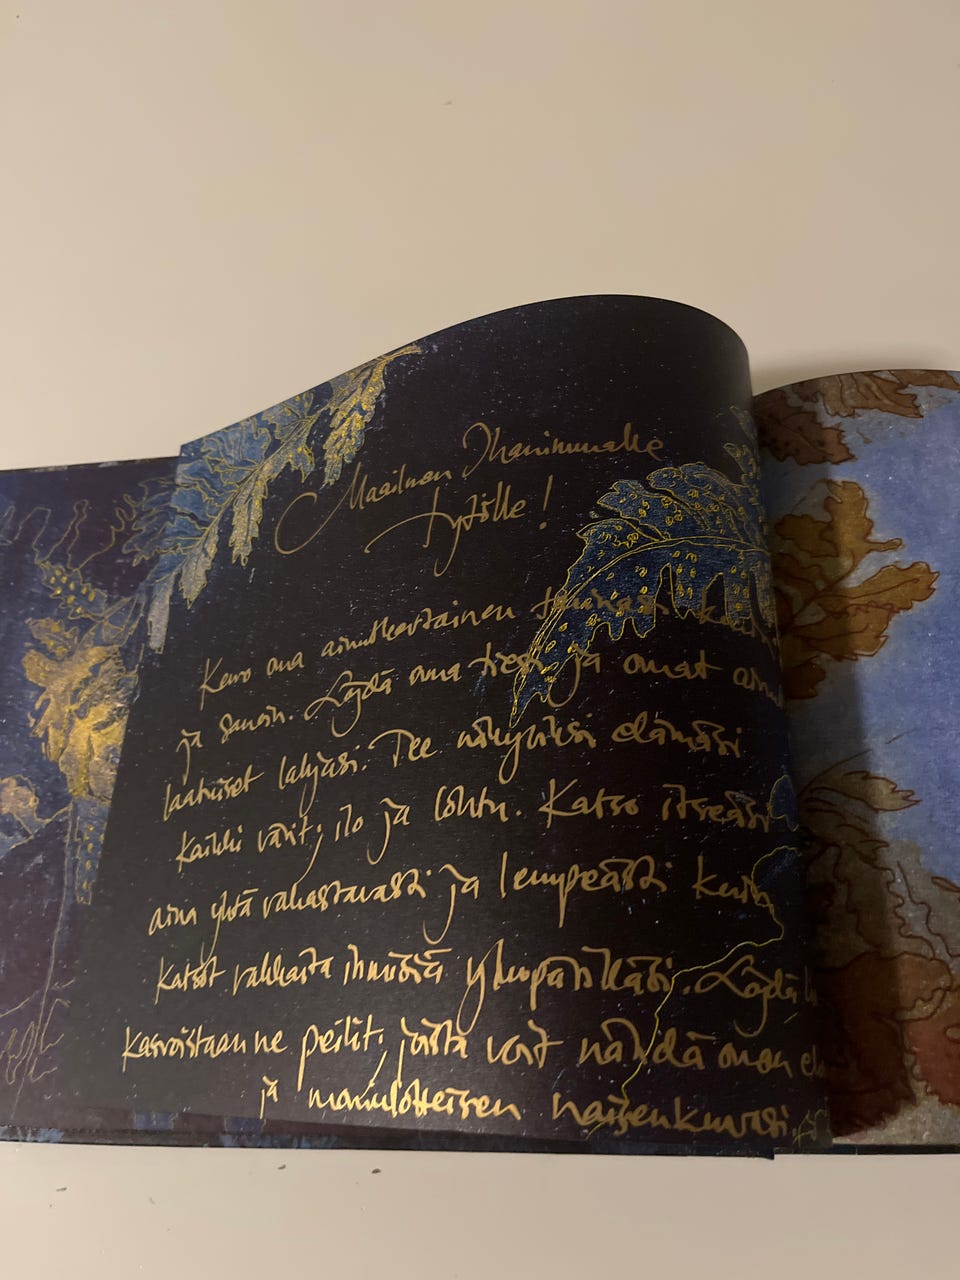 Maailman Ihanimmalle
tytölle!
Kerro oma ainutkertainen tarinasi
ja sanoin. Löydä oma tiesi ja omat
laatuiset lahjasi. Tee näkyviksi elämäsi
kaikki värit, ilo ja lohtu. Katso itseäsi
aina yhtä rakastavasti ja lempeästi kuin
katsot rakkaita ihmisiä ympärilläsi. Löydä
kasvoistaanne peilit, joista voit nähdä oman
ja moniulotteisen naisenkuvasi.